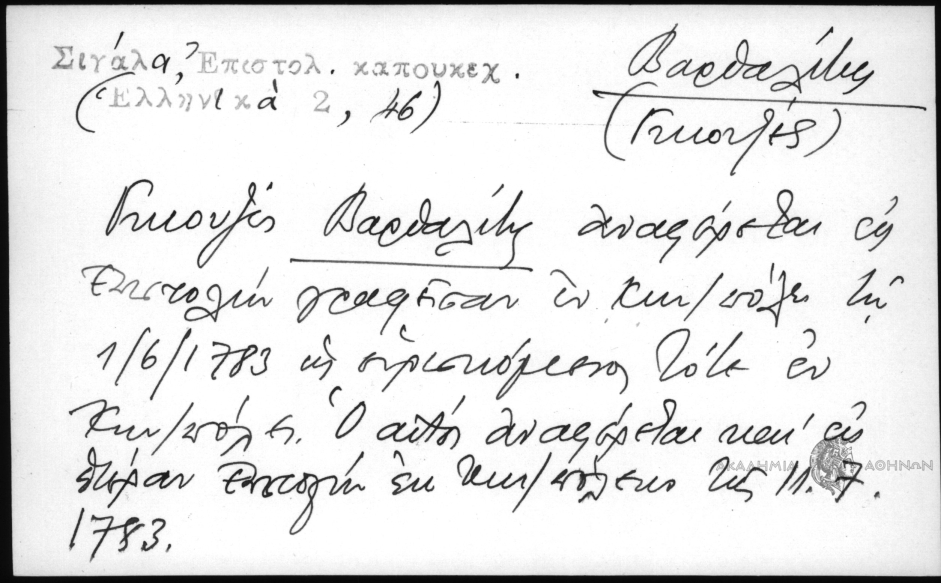 Σιγάλα, Ἐπιστολ. καπουκεχ.
(Ἑλληνικὰ 2, 46)
Βαρθαλίτης
(Γκιουζές)
Γκιουζές Βαρθαλίτης ἀναφέρεται εἰς
ἐπιστολήν γραφεῖσαν ἐν Κων/πόλει τῇ
1/6/1783 ὡς εὑρισκόμενος τότε ἐν
Κων/πόλει. Ὁ αὐτός ἀναφέρεται καί εἰς
ἑτέραν ἐπιστολήν ἐκ Κων/πόλεως τῆς 11.7.
1783.
ΑΚΑΔΗΜΙΑ ΑΘΗΝΩΝ